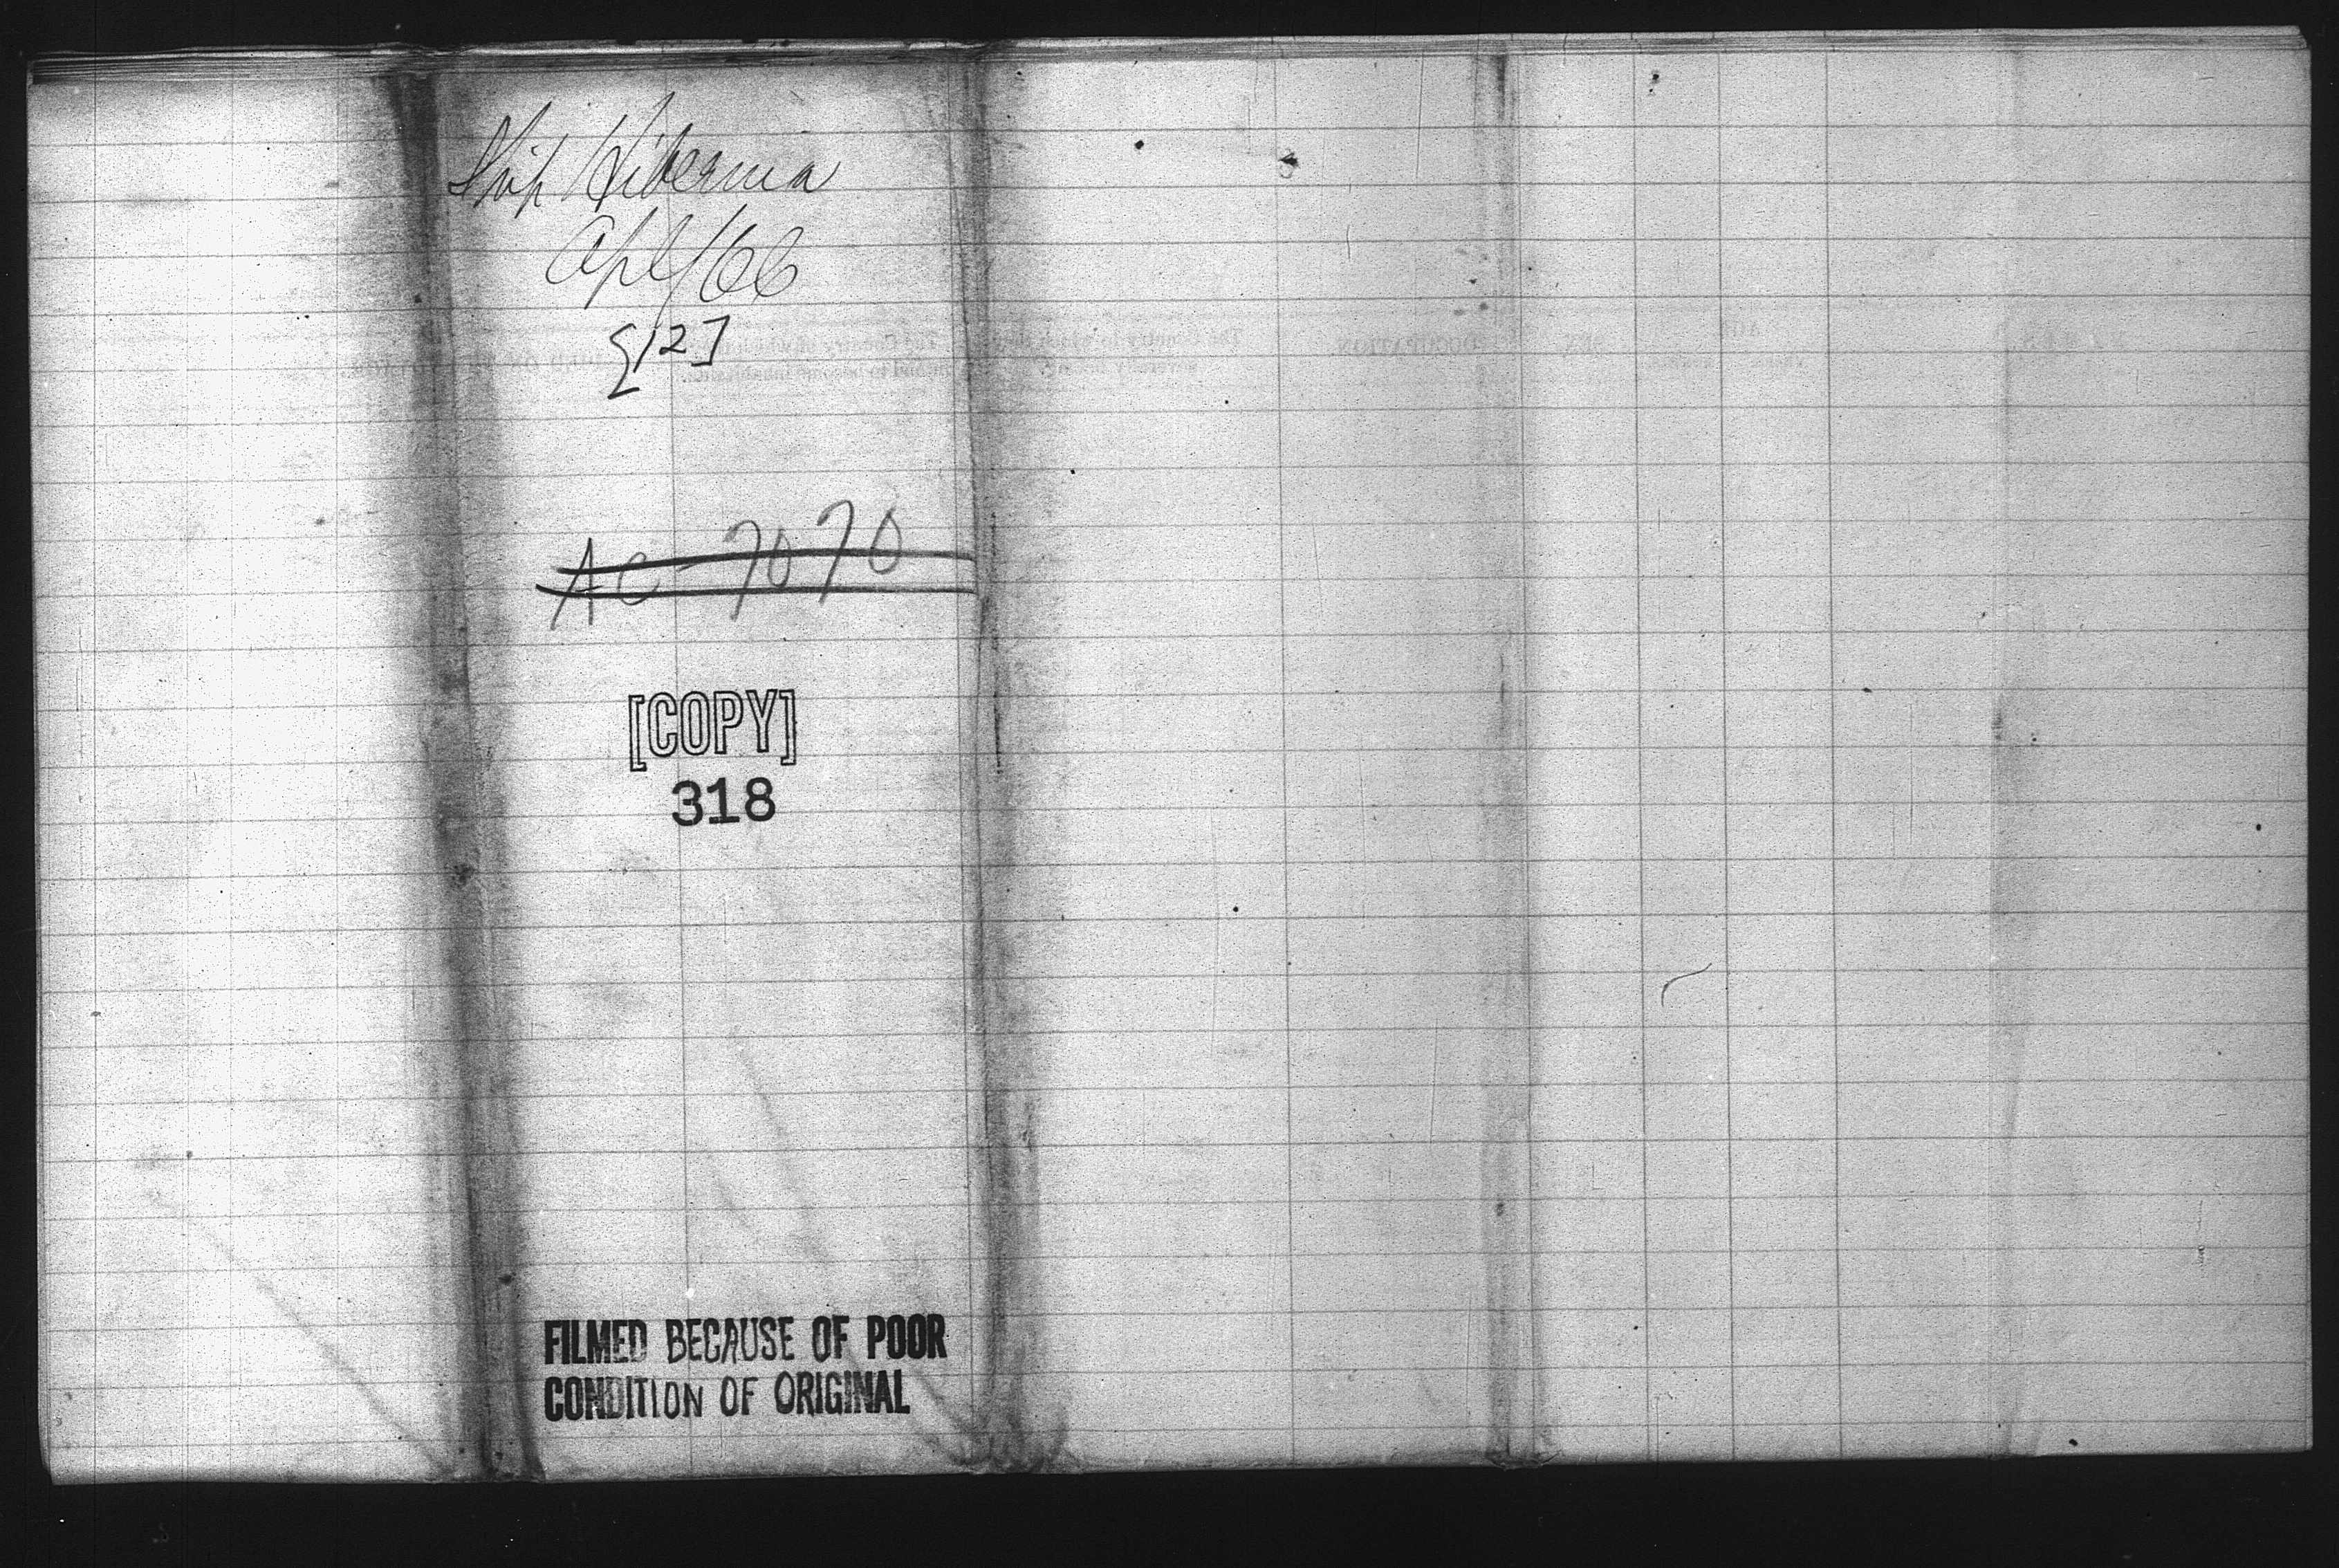 Ship Hibernia
Apl/66
[12]
AC-7070
[COPY]
318
FILMED BECAUSE OF POOR
CONDITION OF ORIGINAL